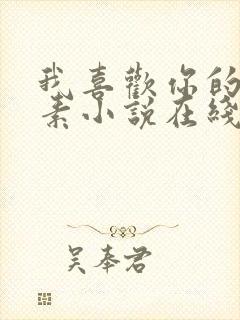 我喜歡你的
素小說在綫
吴奉君